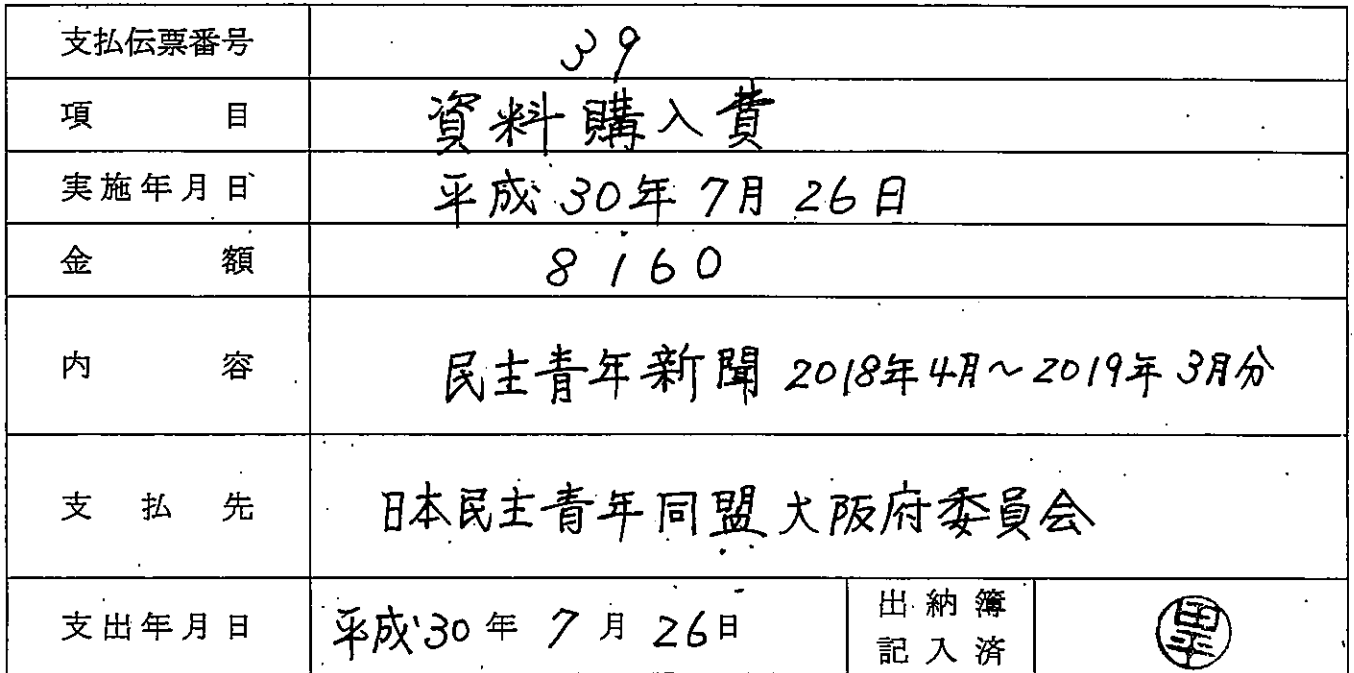 支払伝票番号 39
項目 資料購入費
実施年月日 平成30年7月26日
金額 8160
内容 民主青年新聞 2018年4月～2019年3月分
支払先 日本民主青年同盟大阪府委員会
支出年月日 平成30年7月26日 出納簿
記入済